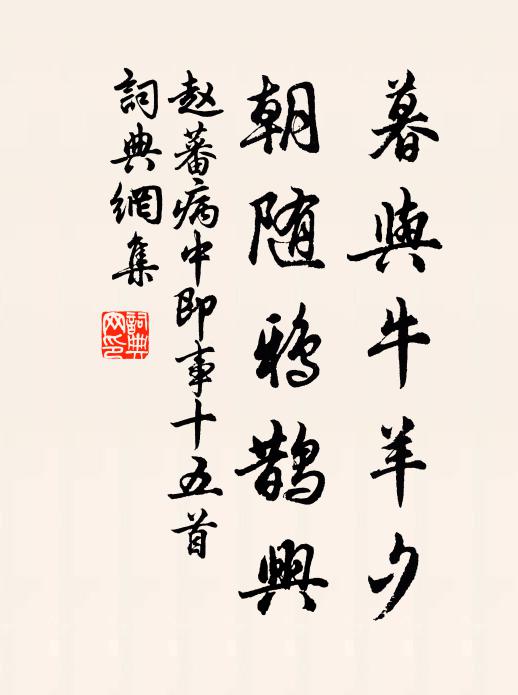 暮與牛羊夕
朝随鸦鹊興
赵蕃病中即事十五首
詞典網集
詞典网印